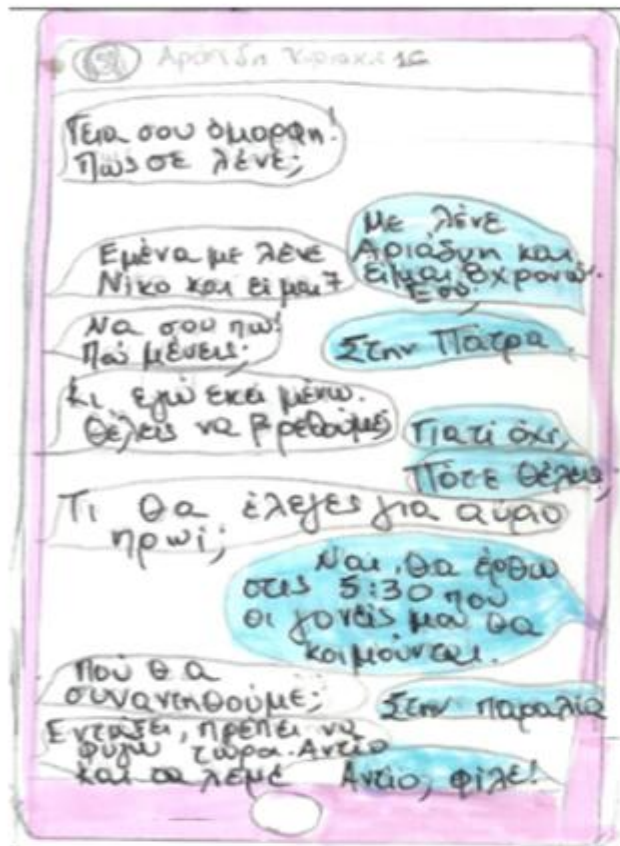 Γεια σου όμορφη!
Πώς σε λένε;
Με λένε
Αριάδνη και
είμαι 8 χρονών.
Εσύ;
Εμένα με λένε
Νίκο και είμαι 7
Να σου πω!
Πού μένεις;
Στην Πάτρα
Κι εγώ εκεί μένω.
Θέλεις να βρεθούμε;
Γιατί όχι,
Πότε θέλεις;
Τι θα έλεγες για αύριο
πρωί;
Ναι, θα έρθω
στις 5:30 που
οι γονείς μου θα
κοιμούνται.
Πού θα
συναντηθούμε;
Στην παραλία
Εντάξει, πρέπει να
φύγω τώρα. Αντίο
και τα λέμε
Αντίο, φίλε!